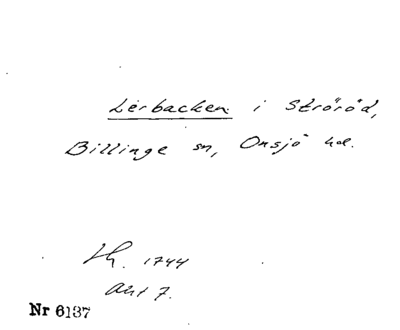 Lerbacken i Ströröd,
Billinge sn, Onsjö hd.
Lh. 1744
ant 7.
Nr 6137